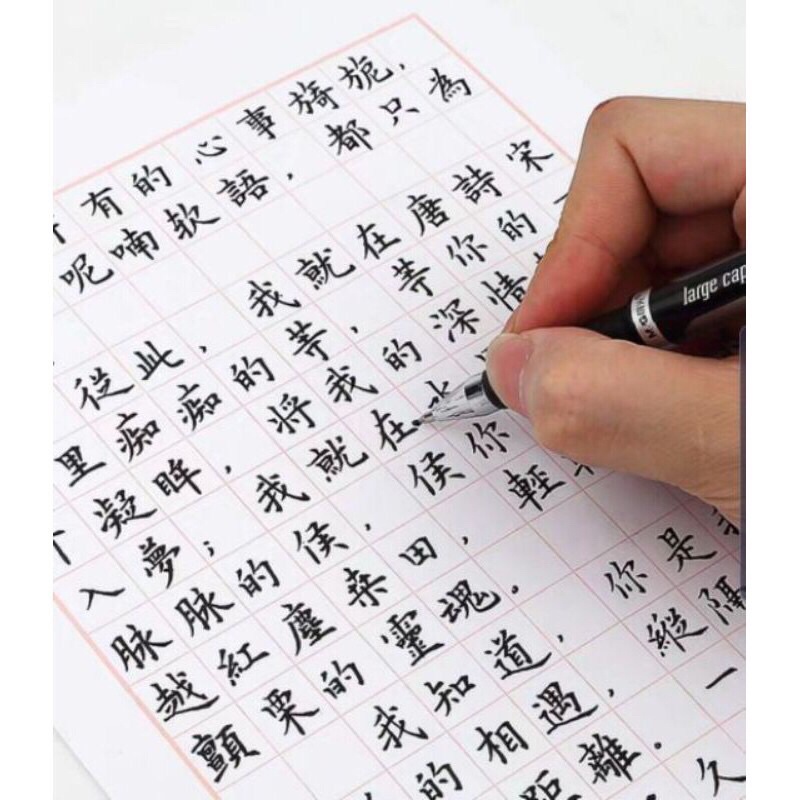 有的心事旖旎，
呢喃软語，都只為
從此，我就在唐詩宋
里痴痴的等，等你的一
凝眸，將我的深情
入夢；我就在
脉脉的侯，侯你
越紅塵桑田，輕
顫栗的靈魂。
我知道，你是
的相遇，縱隔
距離。一
久
large cap